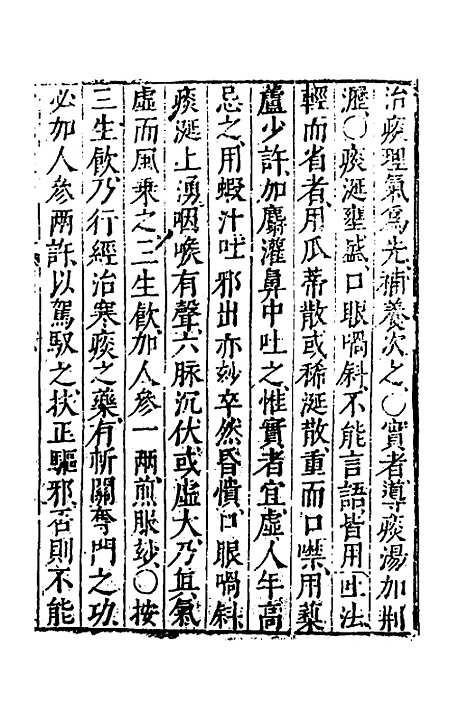 治痰理氣爲先補養次之〇實者導痰湯加荆
瀝〇痰涎壅盛口眼喎斜不能言語皆用吐法
輕而省者用瓜蒂散或稀涎散重而口噤用藜
蘆少許加麝灌鼻中吐之惟實者宜虛人年高
忌之用蝦汁吐邪出亦妙卒然昏憒口眼喎斜
痰涎上湧咽喉有聲六脉沉伏或虛大乃眞氣
虛而風乗之三生飲加人參一兩煎服玅〇按
三生飲乃行經治寒痰之藥有斬關奪門之功
必加人參兩許以駕馭之扶正驅邪否則不能